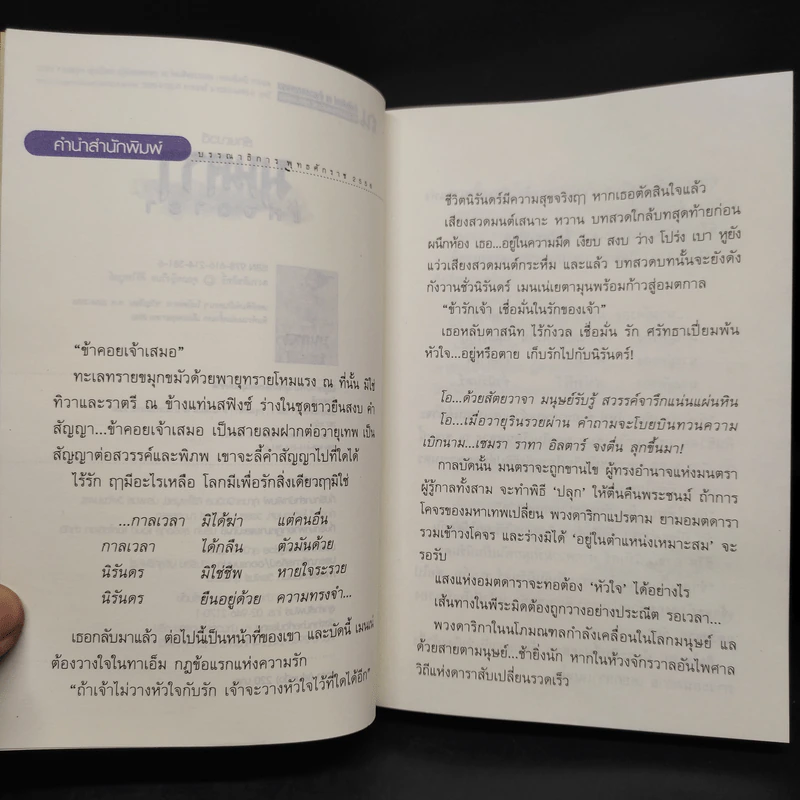 คำนำสำนักพิมพ์
บรรณาธิการ พุทธศักราช
"ข้าคอยเจ้าเสมอ"
ทะเลทรายขมุกขมัวด้วยพายุทรายโหมแรง ณ ที่นั้น มิใช่
ทิวาและราตรี ณ ข้างแท่นสฟิงซ์ ร่างในชุดขาวยืนสงบ คำ
สัญญา...ข้าคอยเจ้าเสมอ เป็นสายลมฝากต่อวายุเทพ เป็น
สัญญาต่อสวรรค์และพิภพ เขาจะลี้คำสัญญาไปที่ใดได้
ไร้รัก ฤๅมีอะไรเหลือ โลกมีเพื่อรักสิ่งเดียวฤๅมิใช่
...กาลเวลา มิได้ฆ่า แต่คนอื่น
กาลเวลา ได้กลืน ตัวมันด้วย
นิรันดร มิใช่ชีพ หายใจระรวย
นิรันดร ยืนอยู่ด้วย ความทรงจำ...
เธอกลับมาแล้ว ต่อไปนี้เป็นหน้าที่ของเขา และบัดนี้ เมนเน่
ต้องวางใจในทาเอ็ม กฎข้อแรกแห่งความรัก
"ถ้าเจ้าไม่วางหัวใจกับรัก เจ้าจะวางหัวใจไว้ที่ใดได้อีก"
ชีวิตนิรันดร์มีความสุขจริงฤๅ หากเธอตัดสินใจแล้ว
เสียงสวดมนต์เสนาะ หวาน บทสวดใกล้บทสุดท้ายก่อน
ผนึกห้อง เธอ...อยู่ในความมืด เงียบ สงบ ว่าง โปร่ง เบา หูยัง
แว่วเสียงสวดมนต์กระหึ่ม และแล้ว บทสวดบทนั้นจะยังดัง
กังวานชั่วนิรันดร์ เมนเน่เยตามุนพร้อมก้าวสู่อมตกาล
"ข้ารักเจ้า เชื่อมั่นในรักของเจ้า"
เธอหลับตาสนิท ไร้กังวล เชื่อมั่น รัก ศรัทธาเปี่ยมพ้น
หัวใจ...อยู่หรือตาย เก็บรักไปกับนิรันดร์!
โอ...ด้วยสัตยวาจา มนุษย์รับรู้ สวรรค์จารึกแน่นแผ่นหิน
โอ...เมื่อวายุรินรวยผ่าน คำถามจะโบยบินทวนความ
เบิกนาม...เชมรา ราทา อิลตาร์ จงตื่น ลุกขึ้นมา!
กาลบัดนั้น มนตราจะถูกขานไข ผู้ทรงอำนาจแห่งมนตรา
ผู้รู้กาลทั้งสาม จะทำพิธี 'ปลุก' ให้ตื่นคืนพระชนม์ ถ้าการ
โคจรของมหาเทพเปลี่ยน พวงดาริกาแปรตาม ยามอมตดารา
รวมเข้าวงโคจร และร่างมิได้ 'อยู่ในตำแหน่งเหมาะสม' จะ
รอรับ
แสงแห่งอมตดาราจะทอต้อง 'หัวใจ' ได้อย่างไร
เส้นทางในพีระมิดต้องถูกวางอย่างประณีต รอเวลา...
พวงดาริกาในนโภมณฑลกำลังเคลื่อนในโลกมนุษย์ แล
ด้วยสายตามนุษย์...ช้ายิ่งนัก หากในห้วงจักรวาลอันไพศาล
วิถีแห่งดาราสับเปลี่ยนรวดเร็ว